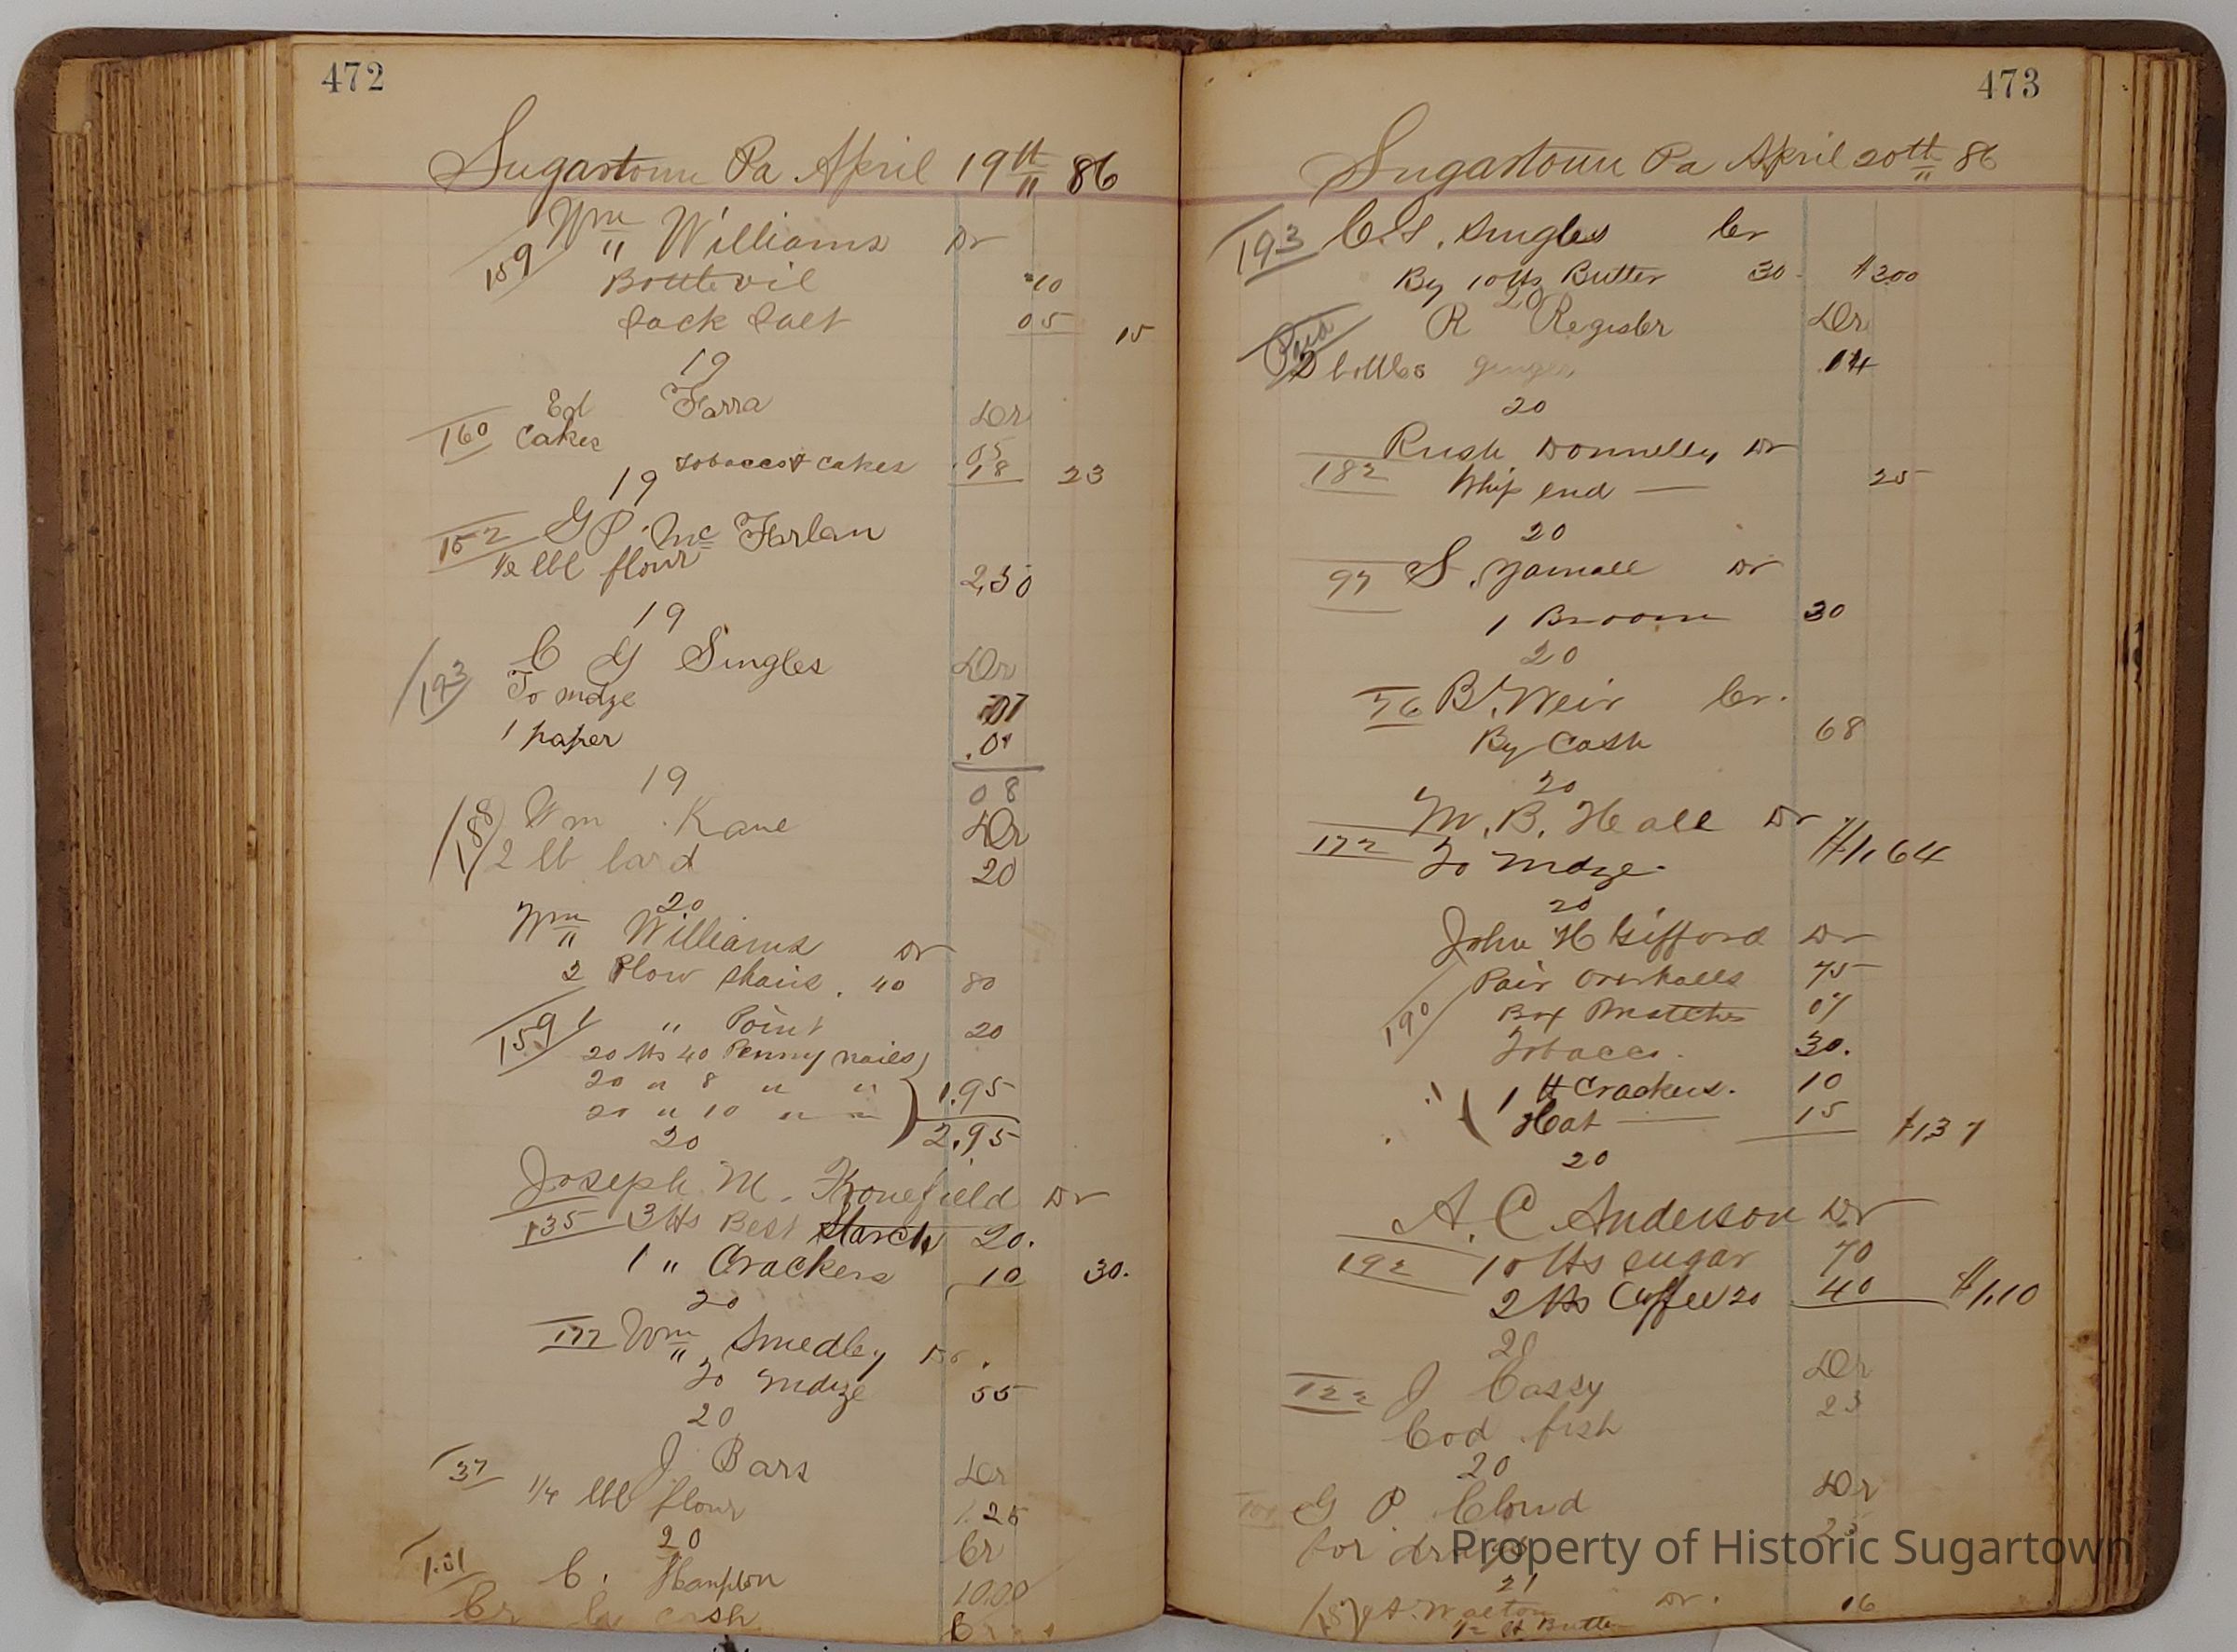 472
Sugartown Pa April 19th 86
Wm Williams Dr
159
Bottle oil 10
Sack Salt 05 15
19
Ed Farra Dr
160 Cakes .05
Tobacco & Cakes 18 23
19
152 G P. Mc Farlan
1/2 bbl flour 2,50
19
C G Singles Dr
193 To mdze 07
1 paper .01
08
19
188 Wm Kane Dr
2 lb lard 20
20
Wm Williams Dr
2 Plow Shairs. 40 80
159 1 " Point 20
20 lbs 40 Penny nails
20 " 8 " " 1.95
20 " 10 " "
2.95
20
Joseph M. Dr
135 3 lbs Best Starch 20.
1 " Crackers 10 30.
20
177 Wm Smedley Dr.
To mdze 55
20
37 J Bars Dr
1/4 bbl flour 1.25
20
C. Hampton Cr
Cr by cash 10.00
473
Sugartown Pa April 20th 86
193 C. G. Singles Cr
By 10 lbs Butter 30 $3.00
20
Paid R Register Dr
2 bottles ginger 14
20
Rush Donnelly Dr
182 Whip end — 25
20
97 S. Yarnall Dr
1 Broom 30
20
76 B. Weir Cr.
By Cash 68
20
M. B. Hall Dr
172 To mdze. $1,64
20
John H Gifford Dr
Pair Overhalls 75
190 Box Matches 07
Tobacco. 30.
1 lb Crackers. 10
Hat — 15 $1,37
20
A. C. Anderson Dr
192 10 lbs sugar 70
2 lbs Coffee 20 40 $1,10
20
122 J Cassy Dr
Cod fish 23
20
G P Cloud Dr
for drugs 25
Property of Historic Sugartown
21
Walton Dr. 16
Butter